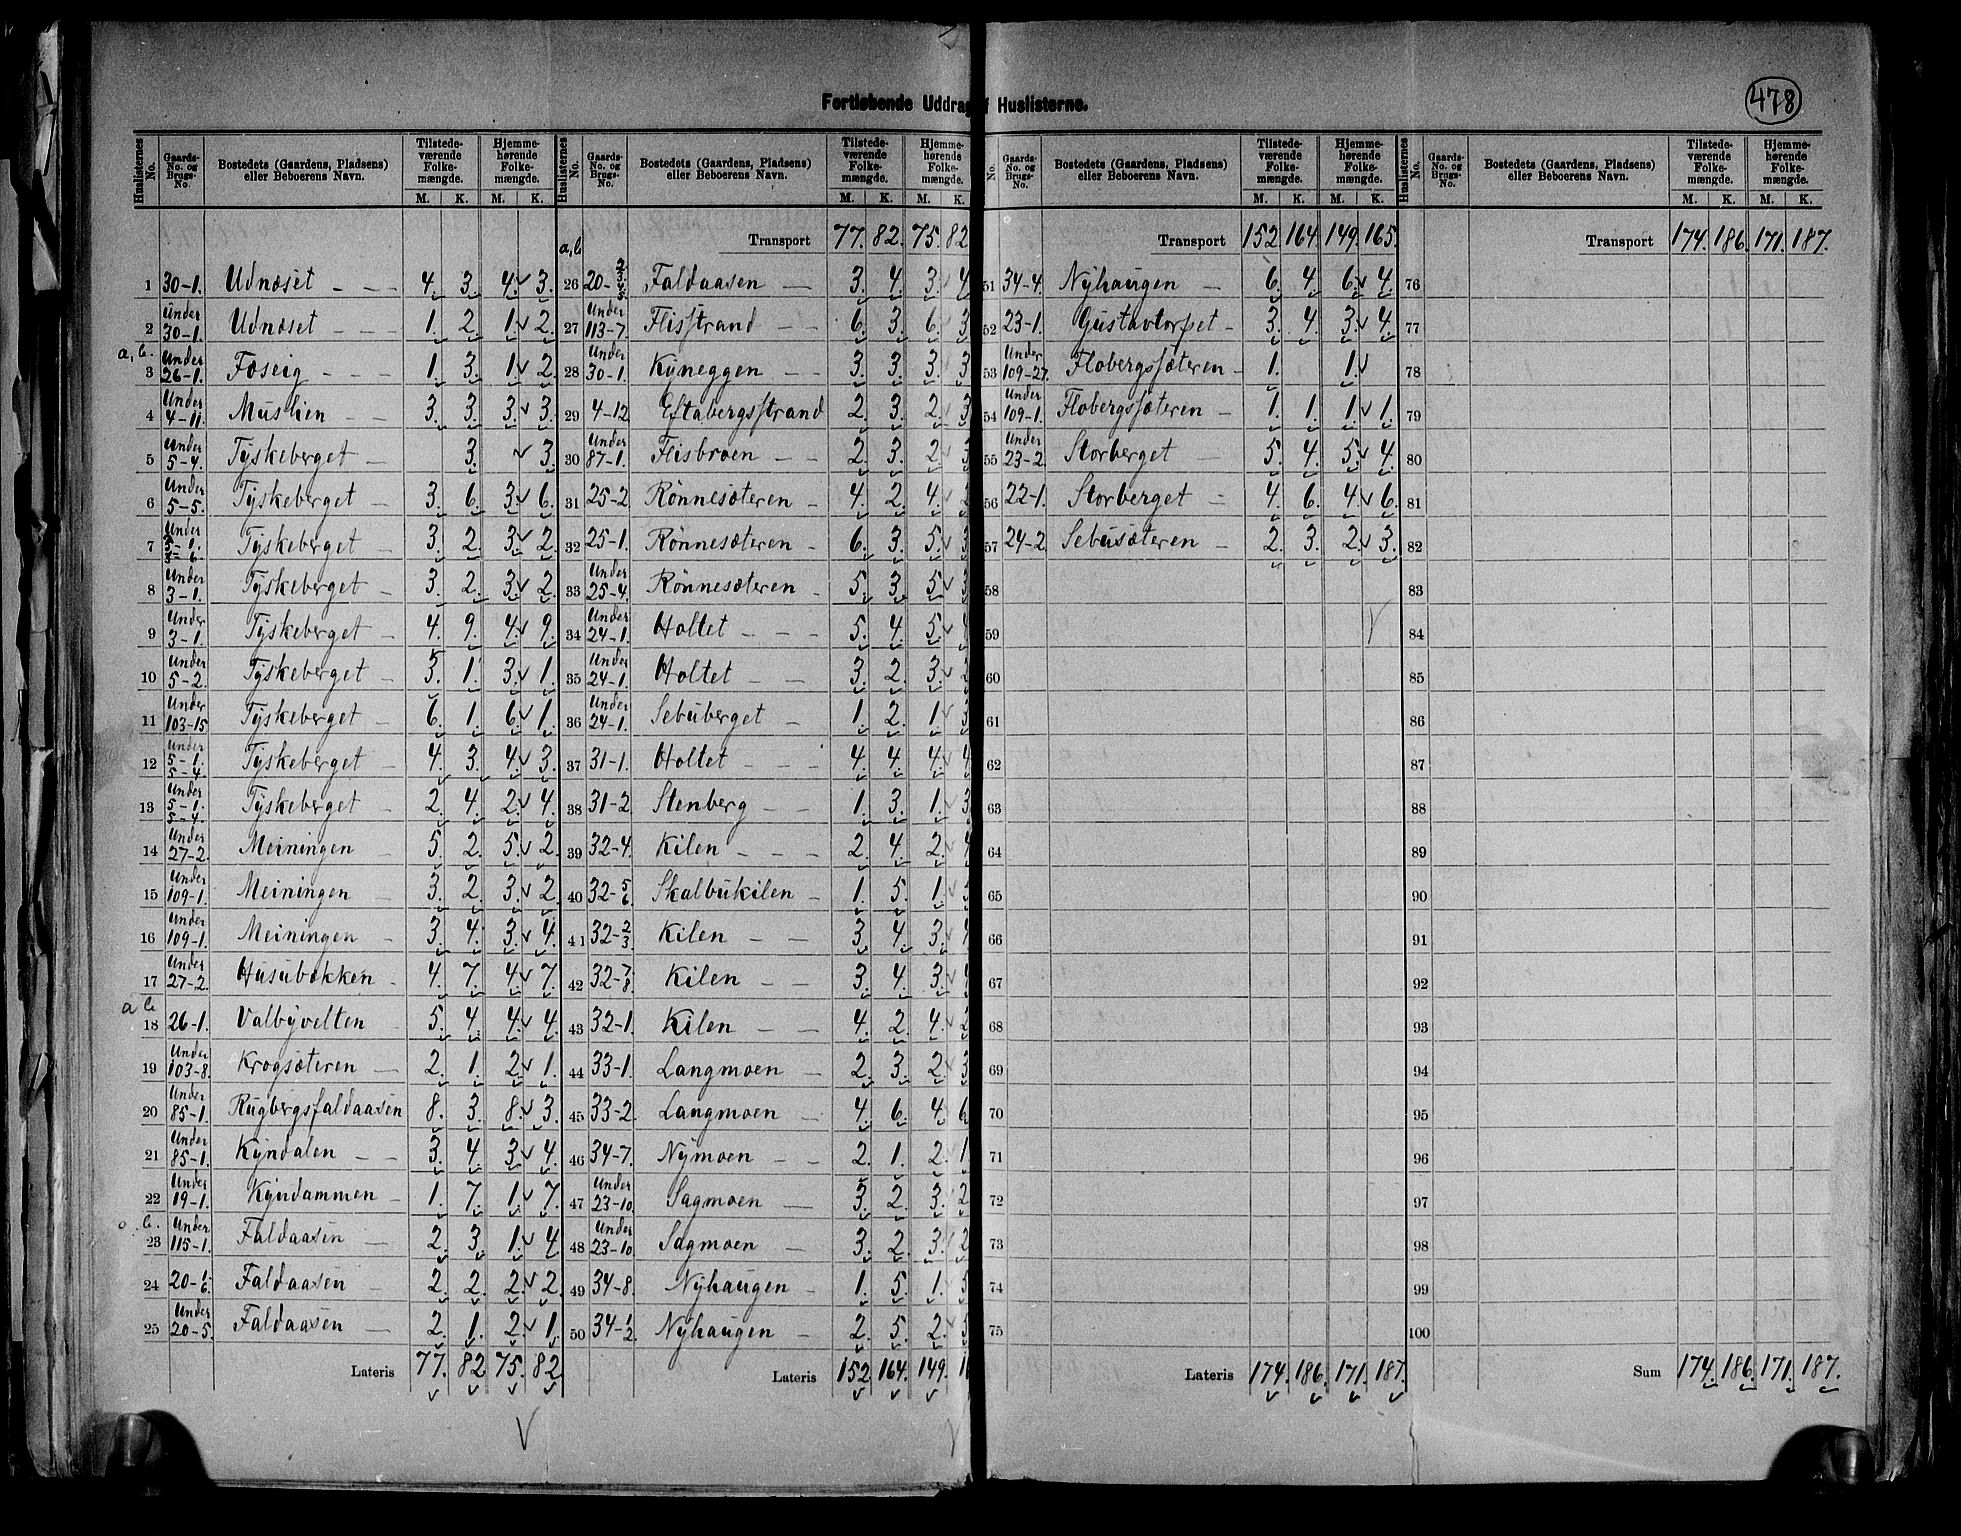 478
Fortløbende Uddrag f Huslisterne.
Huslisternes No. Gaards-No. og Brugs-No. Bostedets (Gaardens, Pladsens) eller Beboerens Navn. Tilstedeværende Folkemængde. M. K. Hjemmehørende Folkemængde. M. K.
1 30-1. Udnæset 4. 3. 4. 3.
2 Under 30-1. Udnæset 1. 2. 1. 2.
a, b. 3 Under 26-1. Foseig 1. 3. 1. 2.
4 Under 4-11. Muslien 3. 3. 3. 3.
5 Under 5-4. Tyskeberget 3. 3.
6 Under 5-5. Tyskeberget 3. 6. 3. 6.
7 Under 5-1. 5-6. Tyskeberget 3. 2. 3. 2.
8 Under 3-1. Tyskeberget 3. 2. 3. 2.
9 Under 3-1. Tyskeberget 4. 9. 4. 9.
10 Under 5-2. Tyskeberget 3. 1. 3. 1.
11 Under 103-15 Tyskeberget 6. 1. 6. 1.
12 Under 5-1. 5-4 Tyskeberget 4. 3. 4. 3.
13 Under 5-1. 5-4. Tyskeberget 2. 4. 2. 4.
14 Under 27-2. Meiningen 5. 2. 5. 2.
15 Under 109-1. Meiningen 3. 2. 3. 2.
16 Under 109-1. Meiningen 3. 4. 3. 4.
17 Under 27-2. Husubækken 4. 7. 4. 7.
a b 18 26-1. Valbyvelten 5. 4. 4. 4.
19 Under 103-8. Krogsæteren 2. 1. 2. 1.
20 Under 85-1. Rugbergsfaldaasen 8. 3. 8. 3.
21 Under 85-1. Kyndalen 3. 4. 3. 4.
22 Under 19-1. Kyndammen 1. 7. 1. 7.
b. 23 Under 115-1. Faldaasen 2. 3. 1. 4.
24 20-1/6. Faldaasen 2. 2. 2. 2.
25 Under 20-5. Faldaasen 2. 1. 2. 1.
Lateris 77. 82 75. 82
Huslisternes No. Gaards-No. og Brugs-No. Bostedets (Gaardens, Pladsens) eller Beboerens Navn. Tilstedeværende Folkemængde. M. K. Hjemmehørende Folkemængde. M. K.
a, b Transport 77. 82. 75. 82
26 20- Faldaasen 3. 4. 3. 4
27 Under 113-7. Flisstrand 6. 3. 6. 3
28 Under 30-1. Kyneggen 3. 3. 3. 3
29 4-12 Eftabergsstrand 2. 3. 2. 3
30 Under 87-1. Flisbroen 2. 3. 2. 3
31 25-2 Rönnesæteren 4. 2. 4. 2
32 25-1. Rönnesæteren 6. 3. 5. 3
33 Under 25-4. Rönnesæteren 5. 3. 5. 3
34 Under 24-1. Holtet 5. 4. 5. 4
35 Under 24-1. Holtet 3. 2. 3. 2
36 Under 24-1. Sebuberget 1. 2. 1. 3
37 31-1. Holtet 4. 4. 4. 4
38 31-2. Stenberg 1. 3. 1. 3
39 32-4. Kilen 2. 4. 2. 4
40 32-5/6. Skalbukilen 1. 5. 1. 5
41 32-2/3 Kilen 3. 4. 3. 4
42 32-7/8. Kilen 3. 4. 3. 4
43 32-1. Kilen 4. 2. 4. 2
44 33-1. Langmoen 2. 3. 2. 3
45 33-2. Langmoen 4. 6. 4. 6
46 34-7. Nymoen 2. 1. 2. 1
47 Under 23-10. Sagmoen 3. 2. 3. 2
48 Under 23-10. Sagmoen 3. 2. 3. 2
49 34-8. Nyhaugen 1. 5. 1. 5
50 34-1/2. Nyhaugen 2. 5. 2. 5
Lateris 152 164. 149. 1
No. Gaards-No. og Brugs-No. Bostedets (Gaardens, Pladsens) eller Beboerens Navn. Tilstedeværende Folkemængde. M. K. Hjemmehørende Folkemængde. M. K.
Transport 152 164. 149. 165.
51 34-4. Nyhaugen 6. 4. 6. 4.
52 23-1. Gustavtorpet 3. 4. 3. 4.
53 Under 109-27. Flobergssæteren 1. 1.
54 Under 109-1. Flobergssæteren 1. 1. 1. 1.
55 Under 23-2. Storberget 5. 4. 5. 4.
56 22-1. Storberget 4. 6. 4. 6.
57 24-2. Sebusæteren 2. 3. 2. 3.
58
59
60
61
62
63
64
65
66
67
68
69
70
71
72
73
74
75
Lateris 174. 186. 171. 187.
Huslisternes No. Gaards-No. og Brugs-No. Bostedets (Gaardens, Pladsens) eller Beboerens Navn. Tilstedeværende Folkemængde. M. K. Hjemmehørende Folkemængde. M. K.
Transport 174. 186. 171. 187.
76
77
78
79
80
81
82
83
84
85
86
87
88
89
90
91
92
93
94
95
96
97
98
99
100
Sum 174. 186. 171. 187.